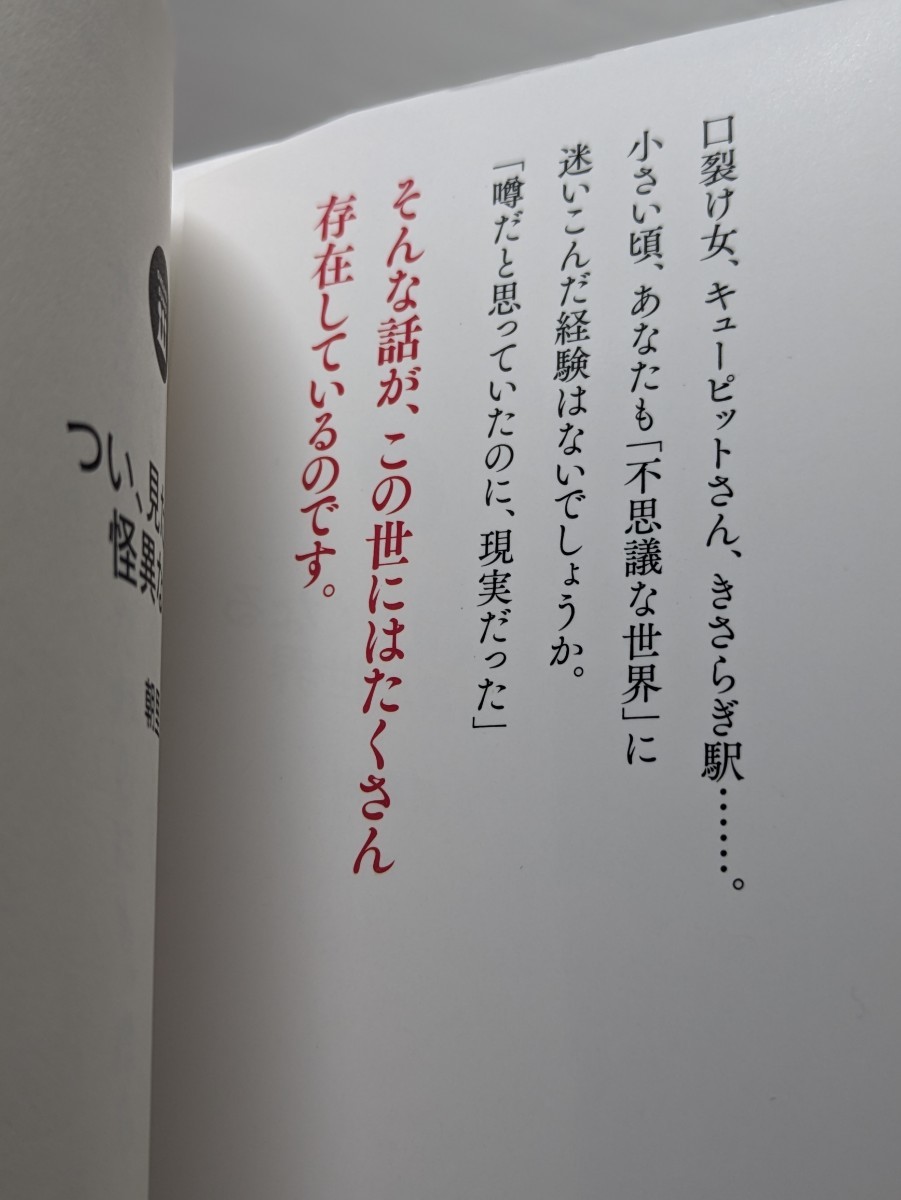 口裂け女、キューピットさん、きさらぎ駅……。
小さい頃、あなたも「不思議な世界」に
迷いこんだ経験はないでしょうか。
「噂だと思っていたのに、現実だった」
そんな話が、この世にはたくさん
存在しているのです。
つい、見
怪異